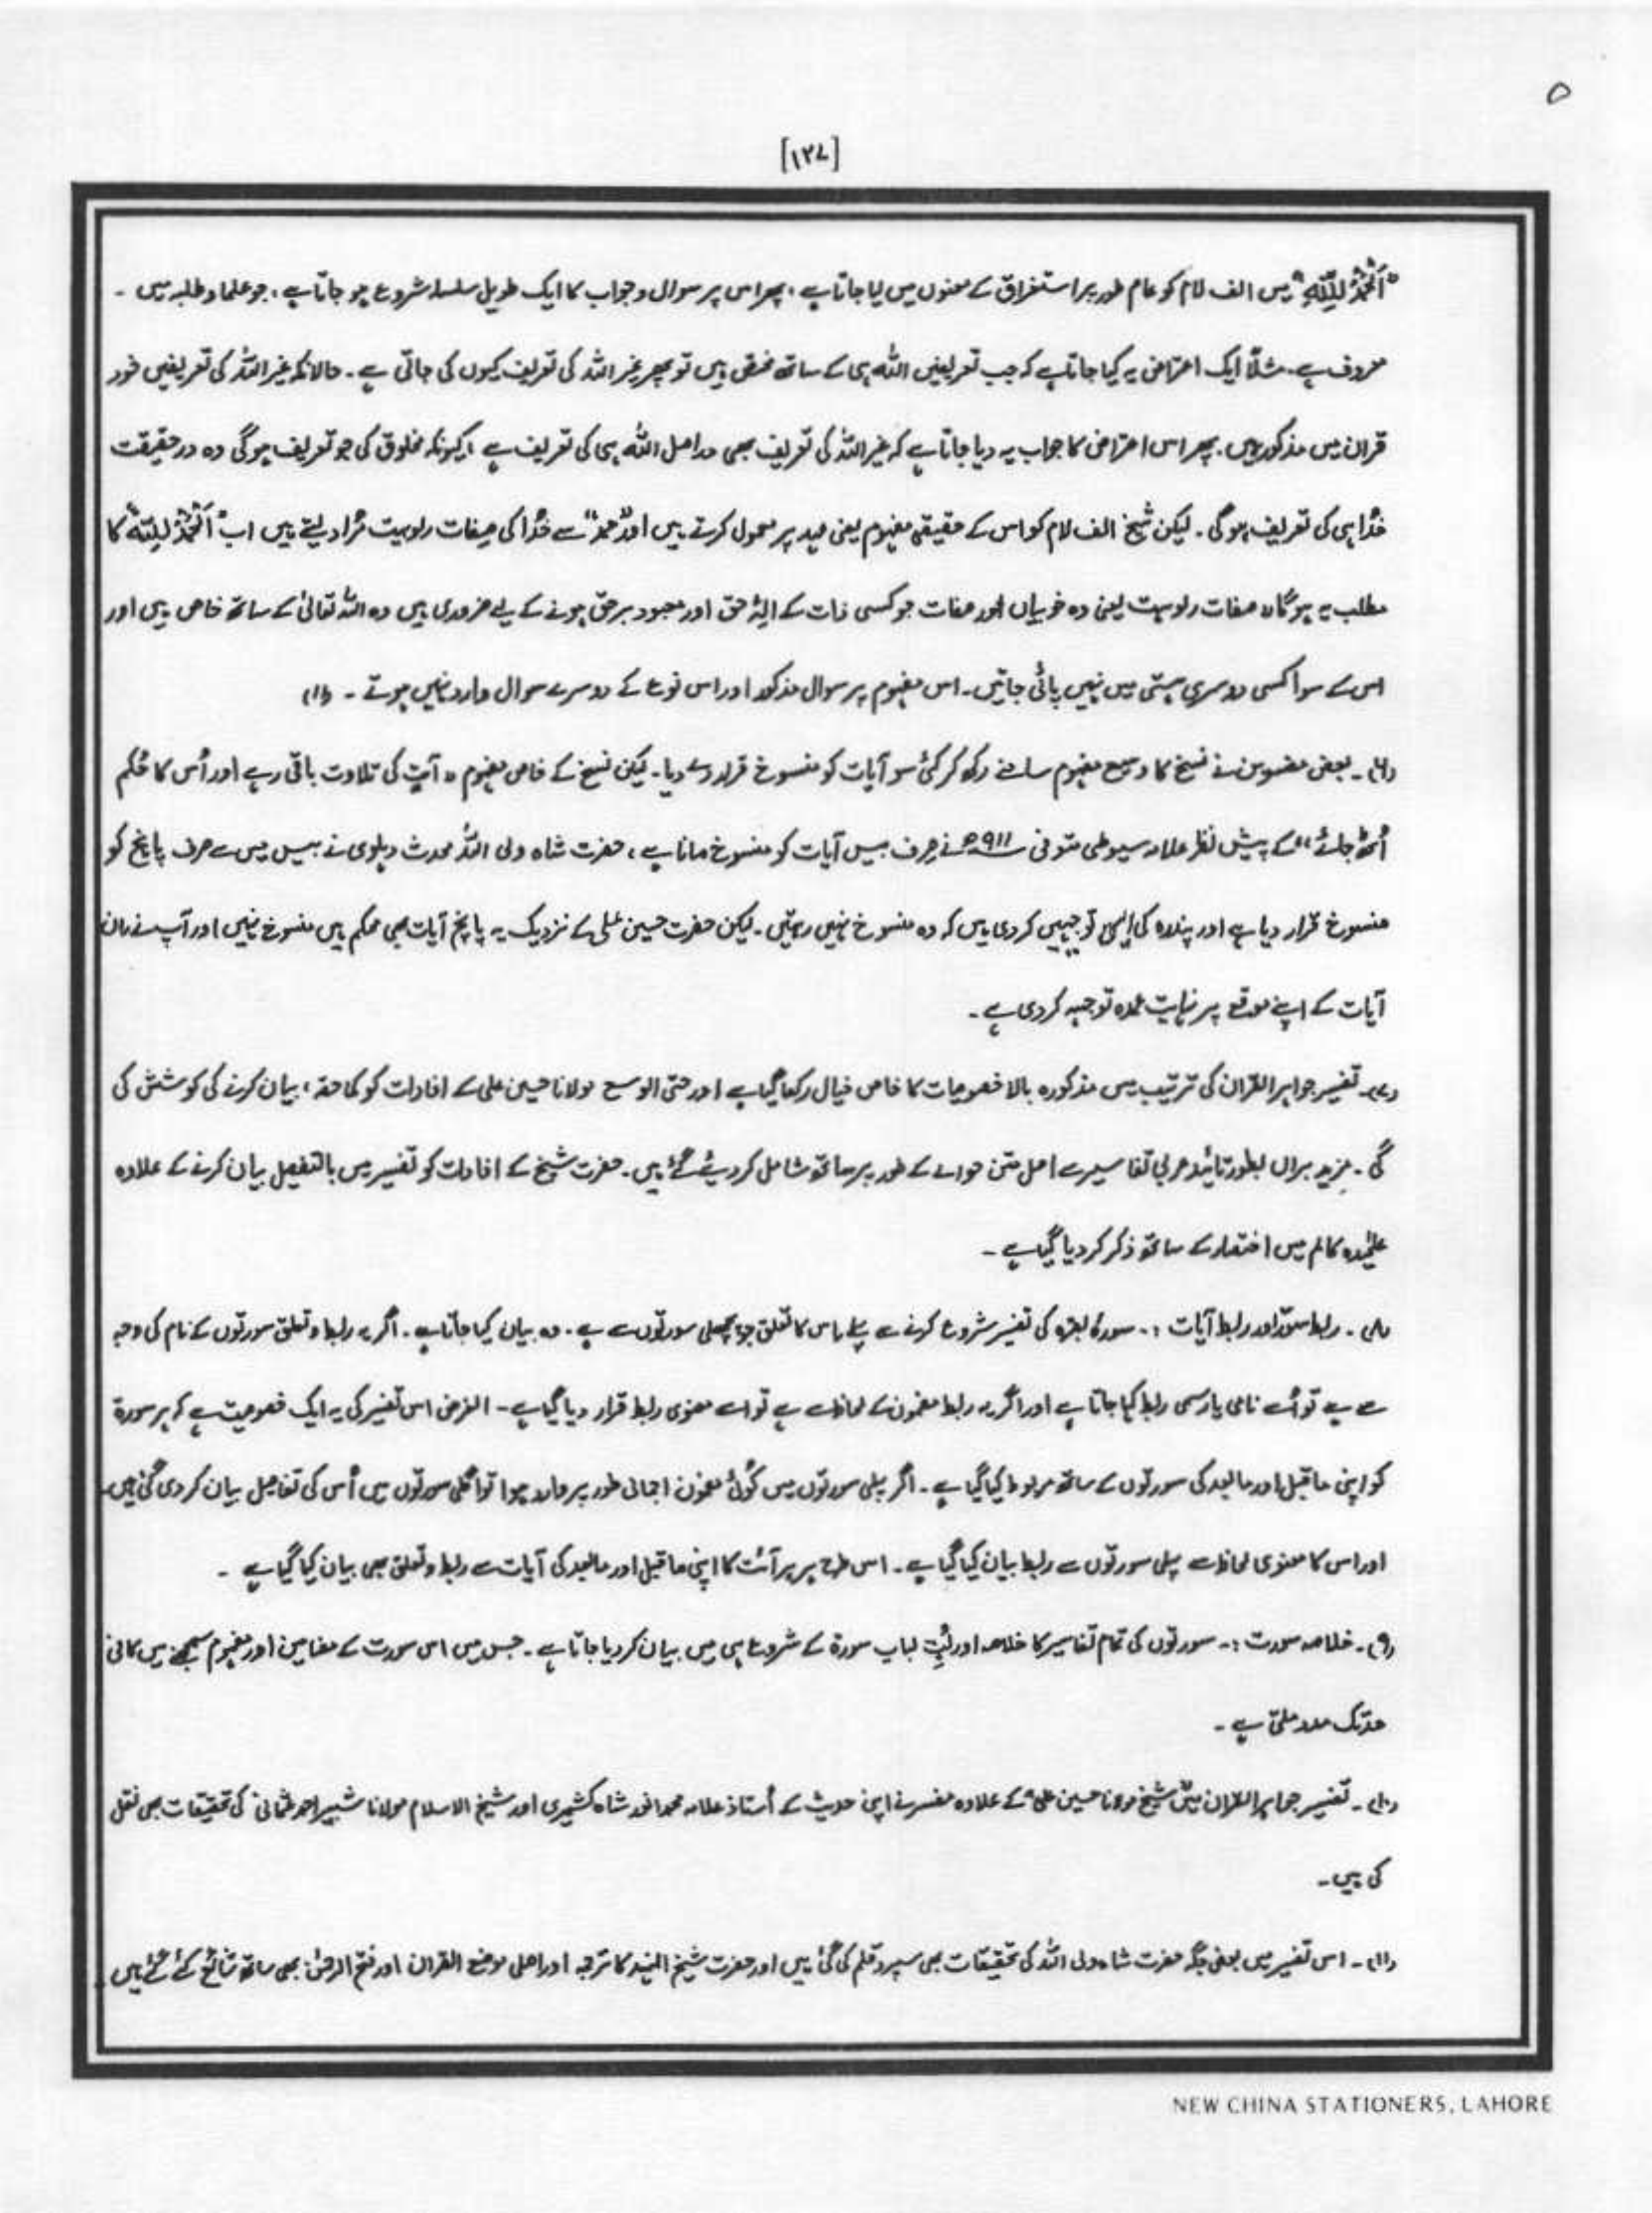 ۵
[۱۲۷]
"اَلْحَمْدُ لِلّٰہِ" میں الف لام کو عام طور پر استغراق کے معنوں میں لیا جاتا ہے، پھر اس پر سوال و جواب کا ایک طویل سلسلہ شروع ہو جاتا ہے، جو علماء و طلبہ میں ۔
معروف ہے۔ مثلاً ایک اعتراض یہ کیا جاتا ہے کہ جب تعریفیں اللہ ہی کے ساتھ مختص ہیں تو پھر غیر اللہ کی تعریف کیوں کی جاتی ہے۔ حالانکہ غیر اللہ کی تعریفیں خود
قرآن میں مذکور ہیں۔ پھر اس اعتراض کا جواب یہ دیا جاتا ہے کہ غیر اللہ کی تعریف بھی دراصل اللہ ہی کی تعریف ہے، کیونکہ مخلوق کی جو تعریف ہوگی وہ درحقیقت
خُدا ہی کی تعریف ہوگی۔ لیکن شیخ الف لام کو اس کے حقیقی مفہوم یعنی عہد پر محمول کرتے ہیں اور "حمد" سے خُدا کی صِفات ربوبیت مُراد لیتے ہیں اب "اَلْحَمْدُ لِلّٰہِ" کا
مطلب یہ ہوگا کہ صفات ربوبیت یعنی وہ خوبیاں اور صفات جو کسی ذات کے الٰہُ حق اور معبود برحق ہونے کے لیے ضروری ہیں وہ اللہ تعالیٰ کے ساتھ خاص ہیں اور
اس کے سوا کسی دوسری ہستی میں نہیں پائی جاتیں۔ اس مفہوم پر سوال مذکور اور اس نوع کے دوسرے سوال وارد نہیں ہوتے ۔ (۱۱)
(۶)۔ بعض مفسرین نے نسخ کا وسیع مفہوم سامنے رکھ کر کئی سو آیات کو منسوخ قرار دے دیا۔ لیکن نسخ کے خاص مفہوم "آیت کی تلاوت باقی رہے اور اُس کا حُکم
اُٹھ جائے" کے پیش نظر علامہ سیوطی متوفی ۹۱۱ھ نے صِرف بیس آیات کو منسوخ مانا ہے، حضرت شاہ ولی اللہ محدث دہلوی نے بیس میں سے صرف پانچ کو
منسوخ قرار دیا ہے اور پندرہ کی ایسی توجیہیں کر دی ہیں کہ وہ منسوخ نہیں رہتیں۔ لیکن حضرت حسین علی کے نزدیک یہ پانچ آیات بھی محکم ہیں منسوخ نہیں اور آپ نے ان
آیات کے اپنے موقع پر نہایت عمدہ توجیہہ کر دی ہے۔
(۷)۔ تفسیر جواہر القرآن کی ترتیب میں مذکورہ بالا خصوصیات کا خاص خیال رکھا گیا ہے اور حتی الوسع مولانا حسین علی کے افادات کو کما حقہ، بیان کرنے کی کوشش کی
گئی ۔ مزید براں بطور تائید عربی تفاسیر سے اصل متن حوالے کے طور پر ساتھ شامل کر دیئے گئے ہیں۔ حضرت شیخ کے افادات کو تفسیر میں بالتفصیل بیان کرنے کے علاوہ
علیٰحدہ کالم میں اختصار کے ساتھ ذکر کر دیا گیا ہے ۔
(۸) ۔ ربط سور اور ربط آیات :۔ سورۃ البقرہ کی تفسیر شروع کرنے سے پہلے اس کا تعلق جو پچھلی سورتوں سے ہے۔ وہ بیان کیا جاتا ہے۔ اگر یہ ربط و تعلق سورتوں کے نام کی وجہ
سے ہے تو اُسے نامی یا رسمی ربط کہا جاتا ہے اور اگر یہ ربط مضمون کے لحاظ سے ہے تو اسے معنوی ربط قرار دیا گیا ہے۔ الغرض اس تفسیر کی یہ ایک خصوصیت ہے کہ ہر سورۃ
کو اپنی ماقبل اور مابعد کی سورتوں کے ساتھ مربوط کیا گیا ہے۔ اگر پہلی سورتوں میں کوئی مضمون اجمالی طور پر وارد ہوا تو اگلی سورتوں میں اُس کی تفاصیل بیان کر دی گئی ہیں۔
اور اس کا معنوی لحاظ سے پہلی سورتوں سے ربط بیان کیا گیا ہے ۔ اس طرح ہر ہر آئت کا اپنی ماقبل اور مابعد کی آیات سے ربط و تعلق بھی بیان کیا گیا ہے ۔
(۹)۔ خلاصہ سورت :۔ سورتوں کی تمام تفاسیر کا خلاصہ اور لُبِّ لباب سورۃ کے شروع ہی میں بیان کر دیا جاتا ہے ۔ جس میں اس سورت کے مضامین اور مفہوم سمجھنے میں کافی
حد تک مدد ملتی ہے ۔
(۱۰)۔ تفسیر جواہر القرآن میں شیخ مولانا حسین علی کے علاوہ مفسر نے اپنی حدیث کے اُستاذ علامہ محمد انور شاہ کشمیری اور شیخ الاسلام مولانا شبیر احمد عثمانی کی تحقیقات بھی نقل
کی ہیں۔
(۱۱)۔ اس تفسیر میں بعض جگہ حضرت شاہ ولی اللہ کی تحقیقات بھی سپرد قلم کی گئی ہیں اور حضرت شیخ الہند کا ترجمہ اور اصلی موضح القرآن اور فتح الرحمٰن بھی ساتھ شائع کئے گئے ہیں
NEW CHINA STATIONERS, LAHORE